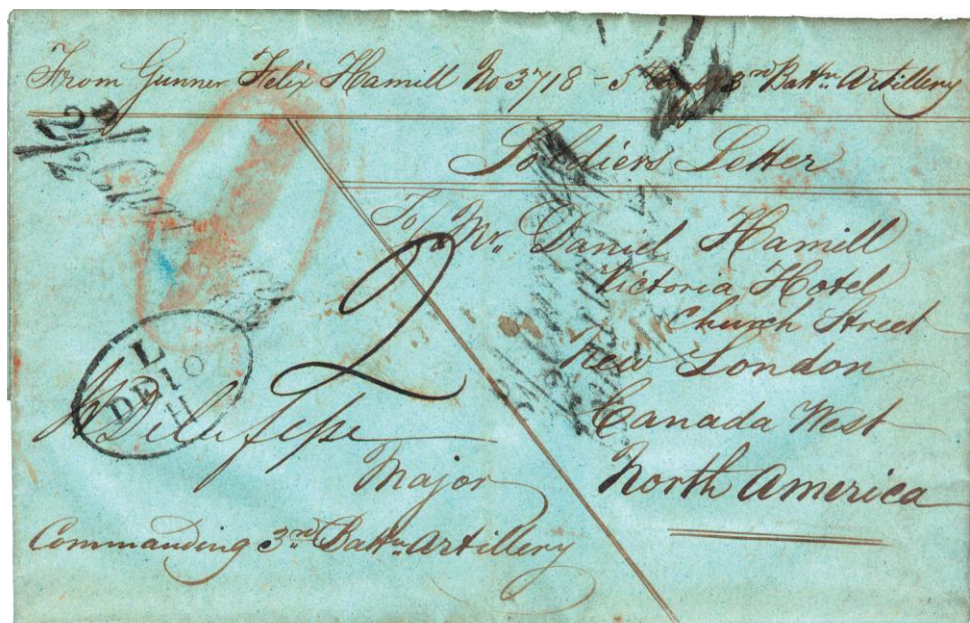 From Gunner Felix Hamill No 3718 - 5th Compy 3rd Battn Artillery
Soldiers Letter
To Mr. Daniel Hamill
Victoria Hotel
Church Street
New London
Canada West
North America
2
L
DE10
H
Major
Commanding 3rd Battn Artillery